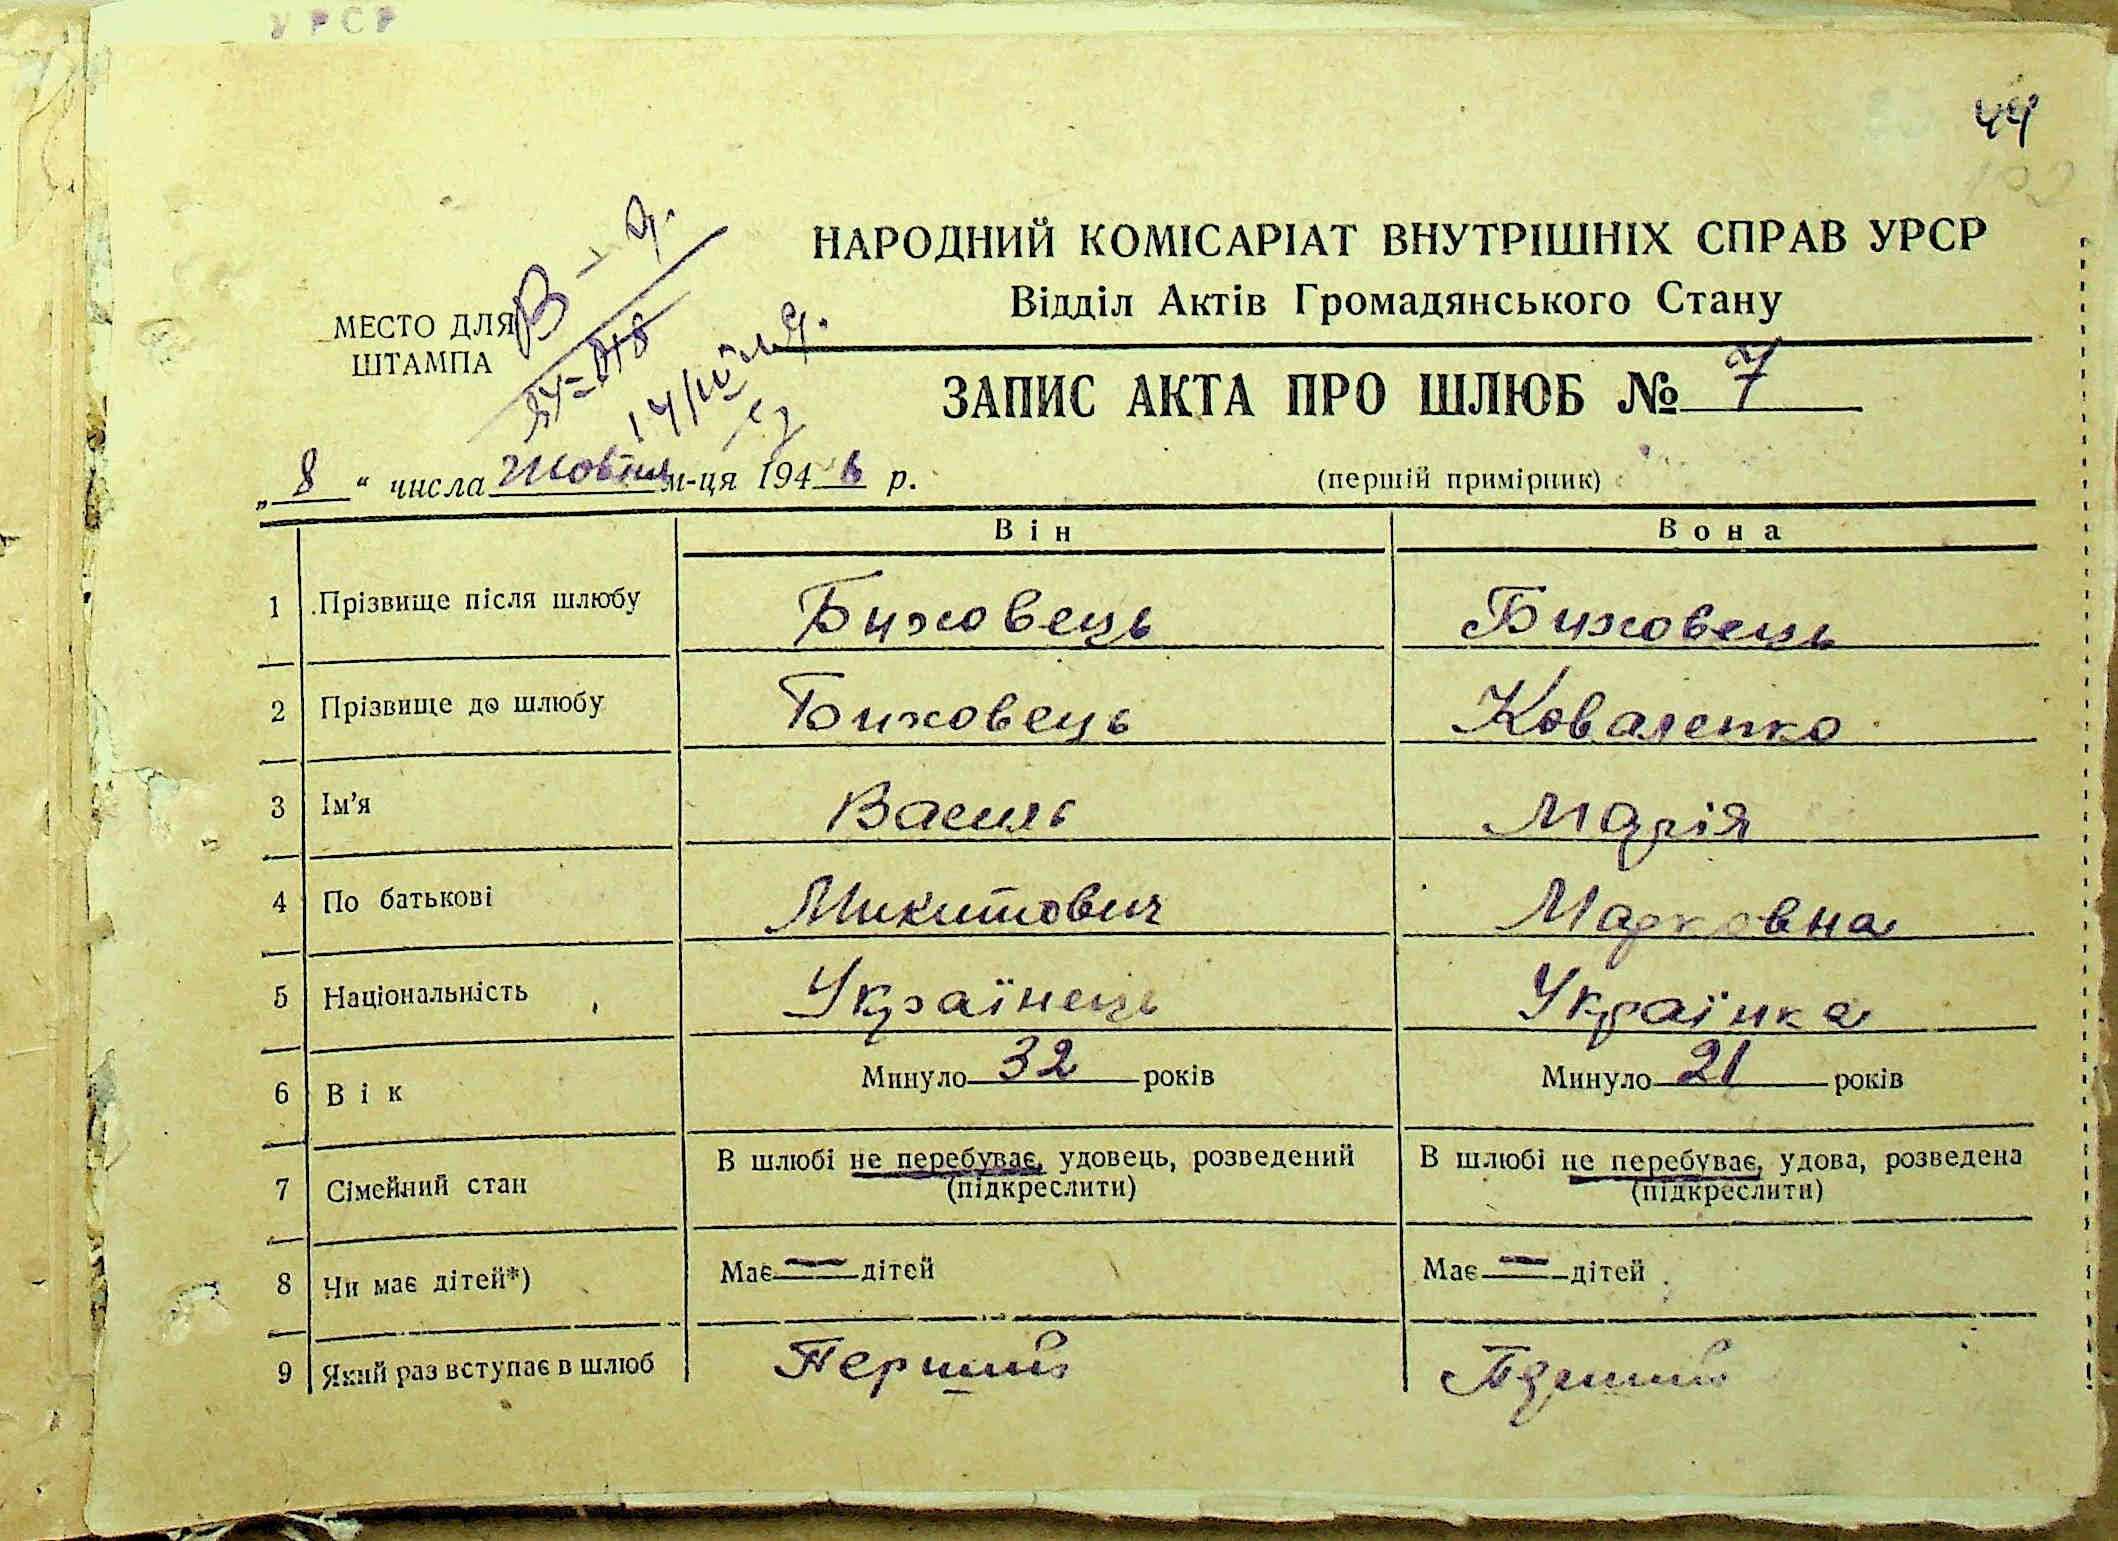 УРСР
44
НАРОДНИЙ КОМІСАРІАТ ВНУТРІШНІХ СПРАВ УРСР
Відділ Актів Громадянського Стану
МЕСТО ДЛЯ
ШТАМПА
ЗАПИС АКТА ПРО ШЛЮБ № 7
„ 8 “ числа жовтня м-ця 194 6 р.
(першій примірник)
Він Вона
1 Прізвище після шлюбу Биховець Биховець
2 Прізвище до шлюбу Биховець Коваленко
3 Ім'я Василь Марія
4 По батькові Микитович Марковна
5 Національність Українець Українка
6 Вік Минуло 32 років Минуло 21 років
7 Сімейний стан В шлюбі не перебуває, удовець, розведений В шлюбі не перебуває, удова, розведена
(підкреслити) (підкреслити)
8 Чи має дітей*) Має — дітей Має — дітей
9 Який раз вступає в шлюб Перший Перший